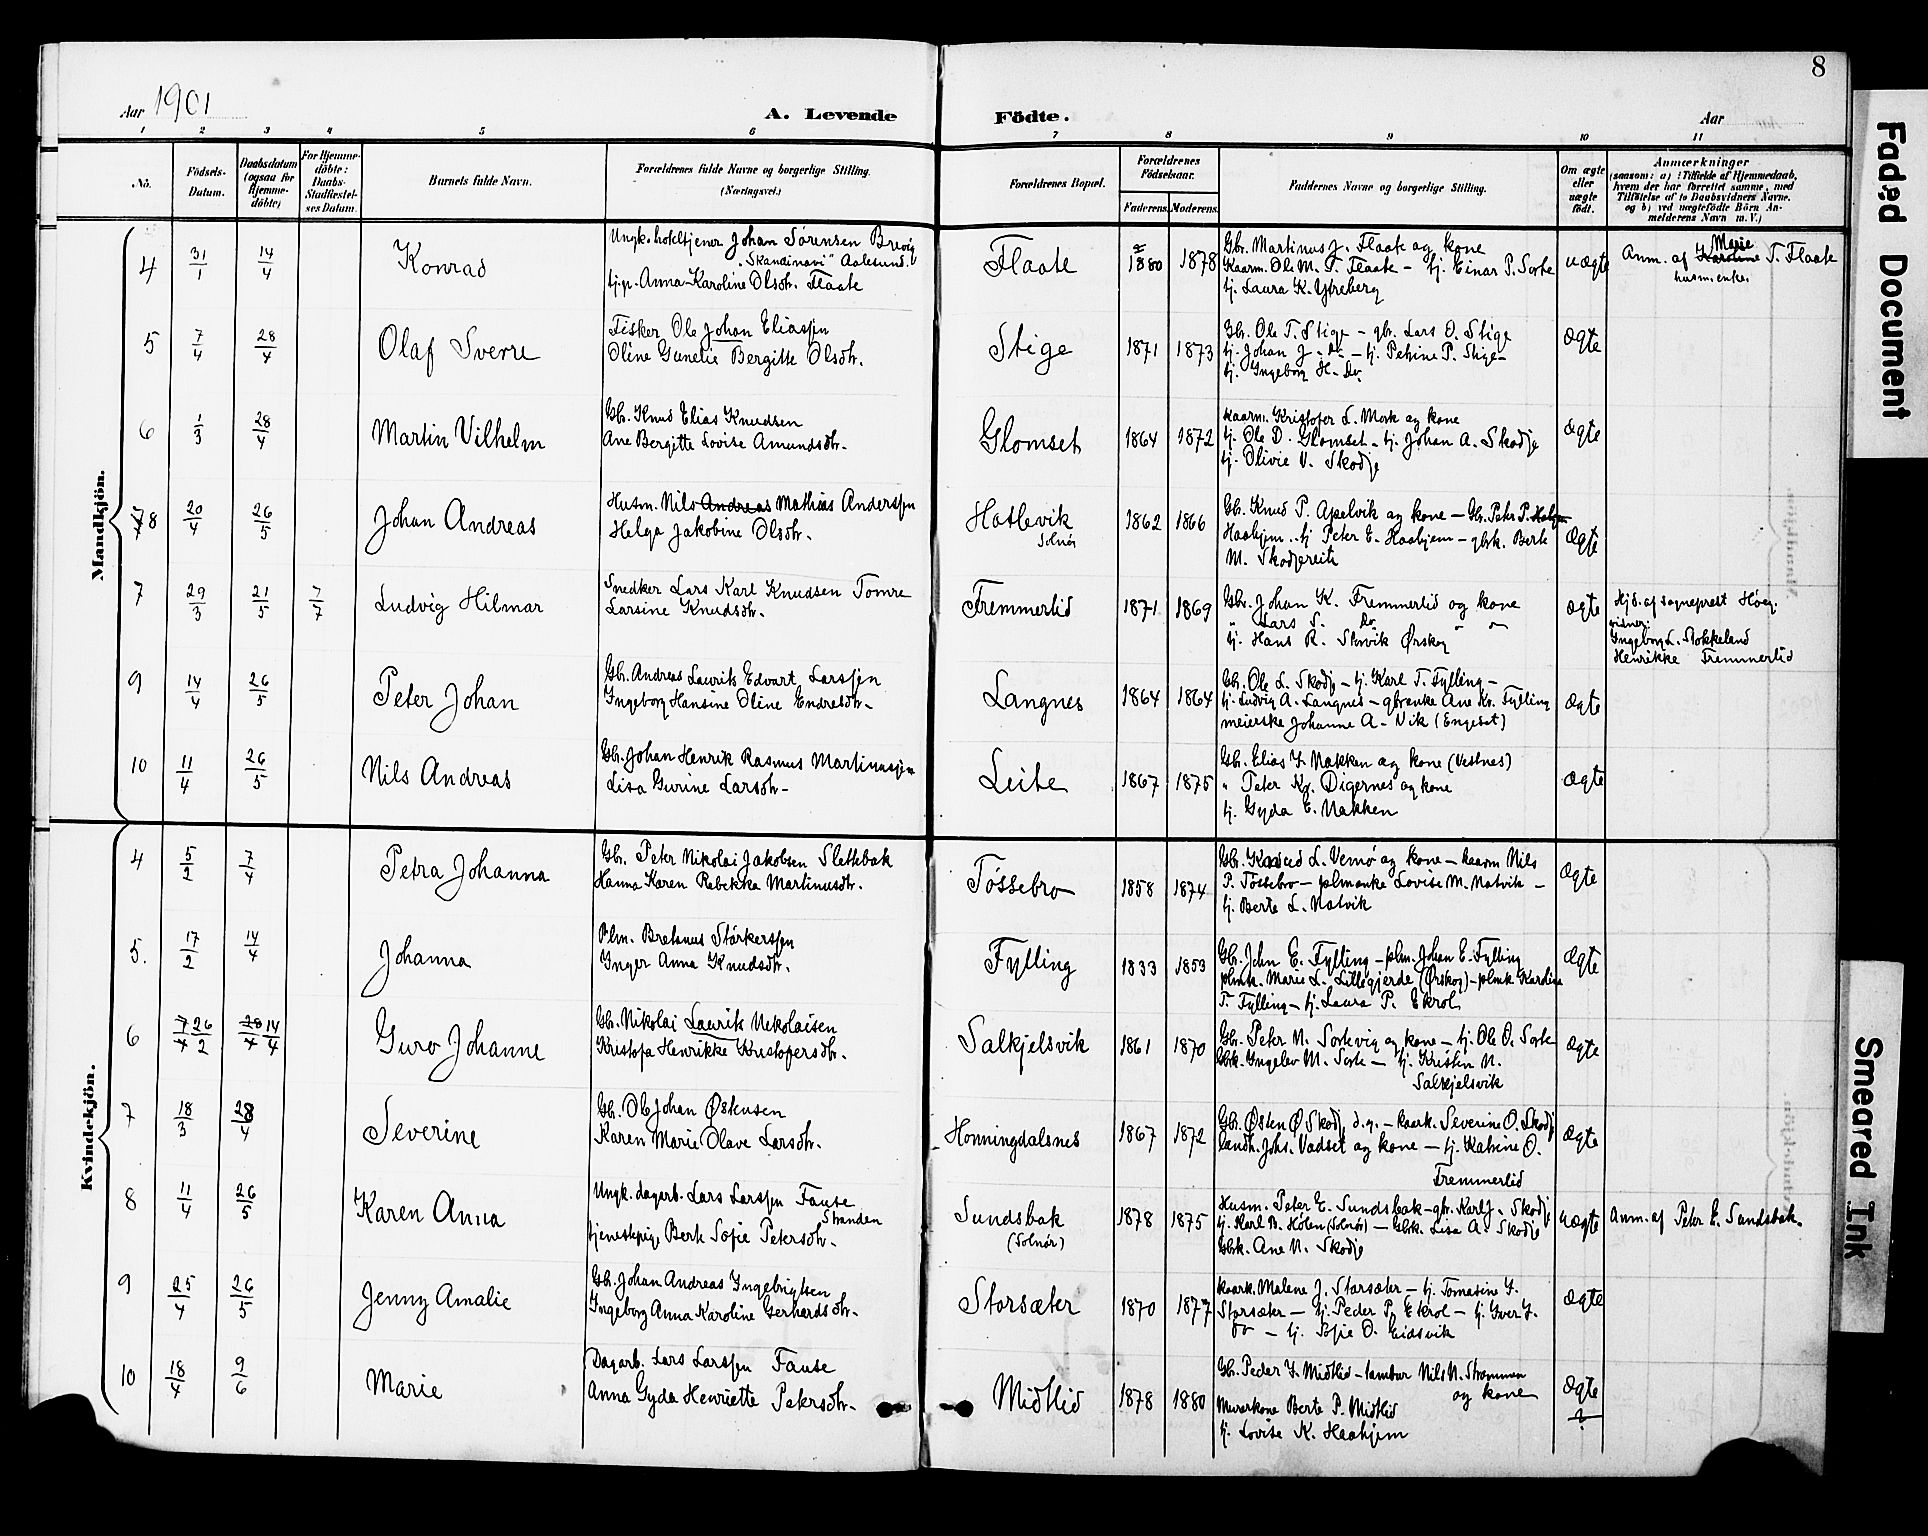 8
Aar 1901
A. Levende Födte.
Aar
1 2 3 4 5 6 7 8 9 10 11
No.
Födsels-Datum.
Daabsdatum (ogsaa for Hjemme-döbte)
For Hjemme-döbte: Daabs-Stadfæstel-ses Datum.
Barnets fulde Navn.
Forældrenes fulde Navne og borgerlige Stilling. (Næringsvei.)
Forældrenes Bopæl.
Forældrenes Födselsaar.
Faderens. Moderens.
Faddernes Navne og borgerlige Stilling.
Om ægte eller uægte födt.
Anmærkninger
(saasom: a) i Tilfælde af Hjemmedaab, hvem der har forrettet samme, med Tilföielse af to Daabsvidners Navne, og b) ved uægtefödte Börn An-melderens Navn m. V.)
Mandkjön.
4 31/1 14/4 Konrad
Ungk. hoteltjener Johan Sørensen Brevig
"Skandinavi" Aalesund.
tj.p. Anna Karoline Olsdtr. Flaate
Flaate 1880 1878
Gbr. Martinus J. Flaate og kone
Kaarm. Ole M. T. Flaate – tj. Einar P. Sorte
tj. Laura K. Ytreberg
uægte
Anm. af Karoline Marie T. Flaate
husm.enke.
5 7/4 28/4 Olaf Sverre
Fisker Ole Johan Eliassen
Oline Gunelie Bergitte Olsdtr.
Stige 1871 1873
Gbr. Ole T. Stige – gbr. Lars O. Stige
tj. Johan J. Do – tj. Petrine P. Stige –
tj. Ingeborg H. Do.
ægte
6 1/3 28/4 Martin Vilhelm
Gbr. Knud Elias Knudsen
Ane Bergitte Lovise Amundsdtr.
Glomset 1864 1872
Kaarm. Kristofer L. Mork og kone
tj. Ole D. Glomset – tj. Johan A. Skodje
tj. Olivie V. Skodje
ægte
8 20/4 26/5 Johan Andreas
Husm. Nils Andreas Mathias Anderssen
Helga Jakobine Olsdtr.
Hatlevik
Solnør
1862 1866
Gb. Knud P. Apelvik og kone – Gb. Peter P.
Haahjem – tj Peter E. Haahjem – gbrk. Berte
M. Skodjereite
ægte
7 29/3 21/5 7/7 Ludvig Hilmar
Snedker Lars Karl Knudsen Tomre
Larsine Knudsdtr.
Fremmerlid 1871 1869
Gbr. Johan K. Fremmerlid og kone
" Lars S. Do. " "
tj. Hans R. Ørskog
ægte
Hjd. af sogneprest Høeg.
vidner:
Ingeborg L. Stokkeland
Henrikke Fremmerlid
9 14/4 26/5 Peter Johan
Gbr. Andreas Laurits Edvart Larssen
Ingeborg Hansine Oline Endresdtr.
Langnes 1864 1864
Gbr. Ole L. Skodje – tj. Karl T. Fylling –
tj. Ludvig A. Langnes – gbrenke Ane Kr. Fylling
meierske Johanne A. Vik (Engeset)
ægte
10 11/4 26/5 Nils Andreas
Gbr. Johan Henrik Rasmus Martinussen
Lisa Gurine Larsdtr.
Leite 1867 1875
Gbr. Elias I. Nakken og kone (Vestnes)
" Peter Kn. Digernes og kone
tj. Gyda E. Nakken
ægte
Kvindekjön.
4 5/2 7/4 Petra Johanna
Gbr. Peter Nikolai Jakobsen Slettebak
Hanna Karen Rebekka Martinusdtr.
Tøssebro 1858 1874
Gbr. L. Vemø og kone – kaarm Nils
P. Tøssebro – plmenke Lovise M. Natvik –
tj. Berte L. Natvik
ægte
5. 17/2 14/4 Johanna
Plm. Bretenus Størkerssen
Inger Anna Knudsdtr.
Fylling 1833 1859
Gbr. John E. Fylling – plm. Johan E. Fylling
plmk. Marie L. Lillegjerde (Ørskog) – plmk Karoline
T. Fylling – tj. Laura P. Ekrol
ægte
6 7/4 26/2 28/4 14/4 Guro Johanne
Gb. Nikolai Laurits Nikolaisen
Kristofa Henrikke Kristofersdtr.
Salkjelsvik 1861 1870
Gbr. Peter N. Sortevig og kone – tj. Ole O. Sorte
Gbk. Ingelev M. Sorte – tj. Kristen N.
Salkjelsvik
ægte
7 18/3 28/4 Severine
Gb. Ole Johan Østensen
Karen Marie Olave Larsdtr.
Honningdalsnes 1867 1872
Gbr. Østen Ø Skodj d.y. – kaark. Severine O. Skodj
landh. Johs. Vadset og kone – tj. Katrine O.
Fremmerlid
ægte
8 11/4 26/5 Karen Anna
Ungk. dagarb. Lars Larssen Fause
Stranden
tjenestepige Berte Sofie Petersdtr.
Sundsbak
(Solnør)
1878 1875
Husm. Peter E. Sundsbak – gbr. Karl J. Skodj
tj. Karl B. Hølen (Solnør) – Gbk. Lisa A. Skodje
Gbk. Ane N. Skodje
uægte
Anm. af Peter E. Sundsbak.
9 25/4 26/5 Jenny Amalie
Gb. Johan Andreas Ingebrigtsen
Ingeborg Anna Karoline Gerhardsdtr.
Storsæter 1870 1877
kaark. Malene J. Storsæter – tj. Tomasine I.
Storsæter – tj. Peder P. Ekrol – tj. Iver I.
Do – tj. Sofie O. Eidsvik
ægte
10 18/4 9/6 Marie
Dagarb. Lars Larssen Fause
Anna Gyda Henriette Petersdtr.
Midtlid 1878 1880
Gbr. Peder I. Midtlid – tambur Nils N. Strømmen
og kone
Murerkone Berte P. Midtlid
tj. Lovise K. Haahjem
ægte
?
Faded Document
Smeared Ink